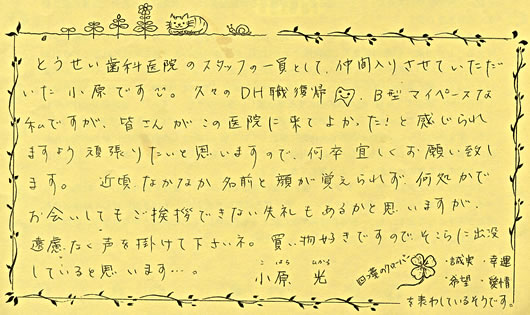 とうせい歯科医院のスタッフの一員として、仲間入りさせていただ
いた小原です。久々のDH職復帰、B型マイペースな
私ですが、皆さんがこの医院に来てよかった!と感じられ
ますよう頑張りたいと思いますので、何卒宜しくお願い致し
ます。 近頃なかなか名前と顔が覚えられず、何処かで
お会いしてもご挨拶できない失礼もあるかと思いますが、
遠慮なく声を掛けて下さいネ。買い物好きですのでそこらに出没
していると思います…。
こはら ひかる
小原 光
四つ葉のクローバー
・誠実 ・幸運
・希望 ・愛情
を表わしているそうです。